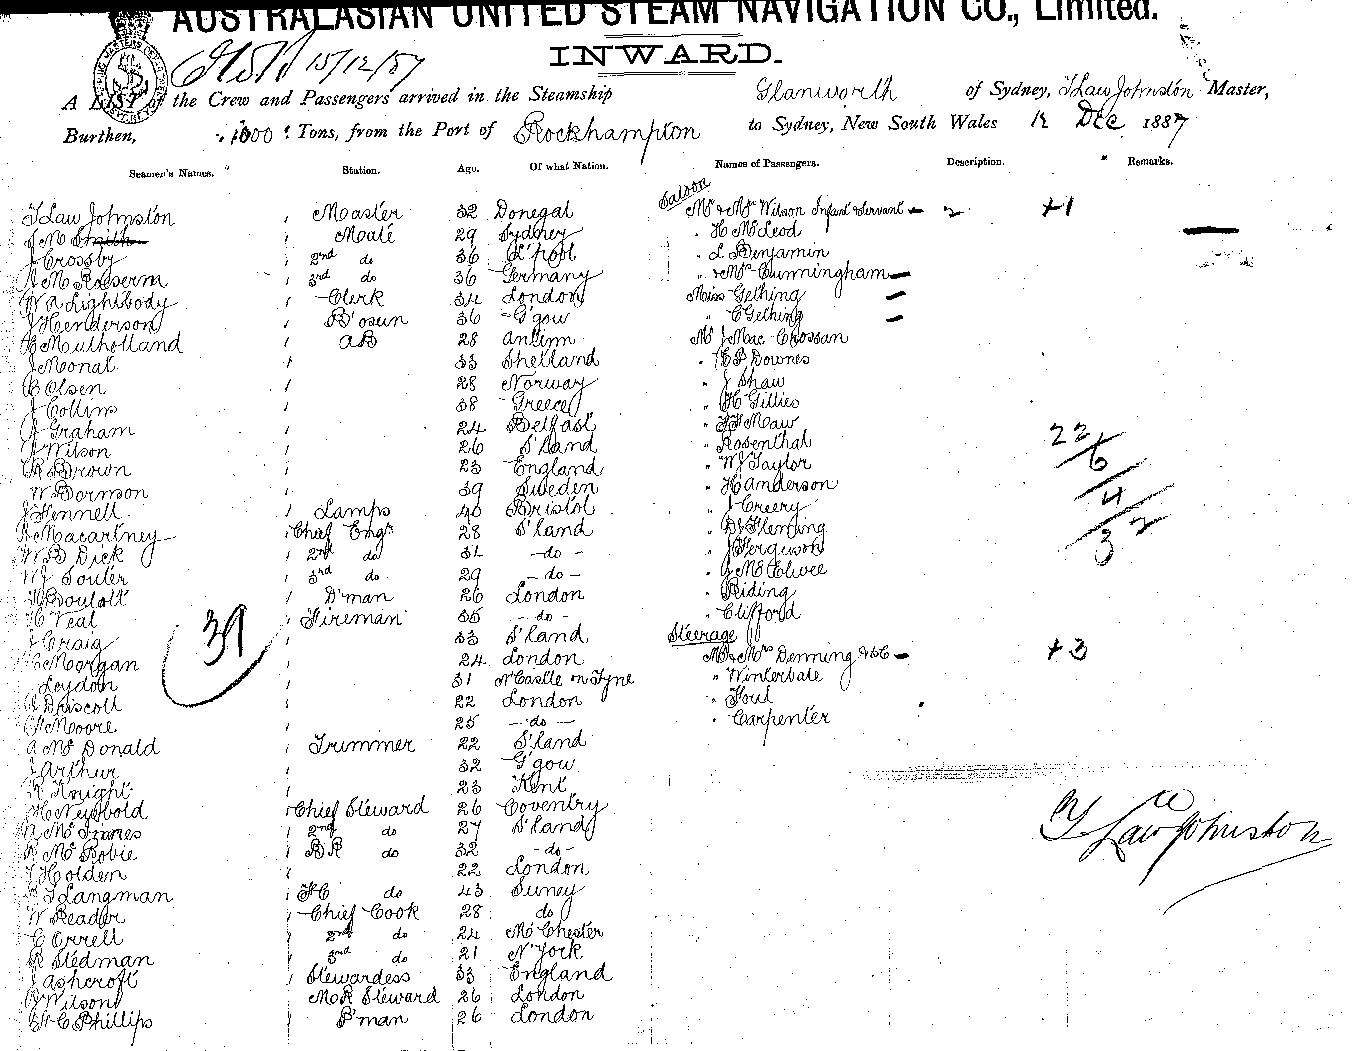 AUSTRALASIAN UNITED STEAM NAVIGATION CO., Limited.
INWARD.
15/12/87
A LIST of the Crew and Passengers arrived in the Steamship Glanworth of Sydney, T Law Johnston Master,
Burthen, 1000 Tons, from the Port of Rockhampton to Sydney, New South Wales 12 Dec 1887
Seamen's Names. Station. Age. Of what Nation. Names of Passengers. Description. Remarks.
Saloon
T Law Johnston Master 32 Donegal Mr & Mrs Wilson Infant & Servant 2 +1
J Mc Smith Mate 29 Sydney " H McLeod
J Crossby 2nd do 36 L'pool " L Benjamin
3rd do 36 Germany " & Mrs Cunningham
W A Lightbody Clerk 34 London Miss Gething
J Henderson B'osun 36 G'gow " C Gething
Mulholland AB 28 Antrim Mr J Mac Crossan
J Monat 33 Shetland " Downes
C Olsen 28 Norway " J Shaw
J Collins 38 Greece " H Gillies
J Graham 24 Belfast " Maw
J Wilson 26 S'land " Rosenthal
R Brown 23 England " W J Taylor
W Bormon 39 Sweden " H Anderson
J Fennell Lamps 40 Bristol " J Creery
Macartney Chief Engr 28 S'land " Fleming
W B Dick 2nd do 31 - do - " J Ferguson
W J Souter 3rd do 29 - do - " J McElwee
D'man 26 London " Riding
H Veal Fireman 35 - do - " Clifford
J Craig 33 S'land Steerage
Morgan 24 London Mr & Mrs Denning +3
Leydon 31 N'Castle on Tyne " Wintervale
Driscoll 22 London " Foul
Moore 25 - do - " Carpenter
A Mc Donald Trummer 22 S'land
J Arthur 32 G'gow
R Knight 23 Kent
H Neybold Chief Steward 26 Coventry
Mc Innes 2nd do 27 S'land
R McRobie BR do 32 - do -
T Holden 22 London
Langman FC do 43 Surrey
W Reader Chief Cook 28 do
C Orrell 2nd do 24 M'Chester
R Stedman 3rd do 21 N'York
J Ashcroft Stewardess 33 England
Wilson M R Steward 26 London
C Phillips P'man 26 London
39
22
6
4
3 2
T Law Johnston